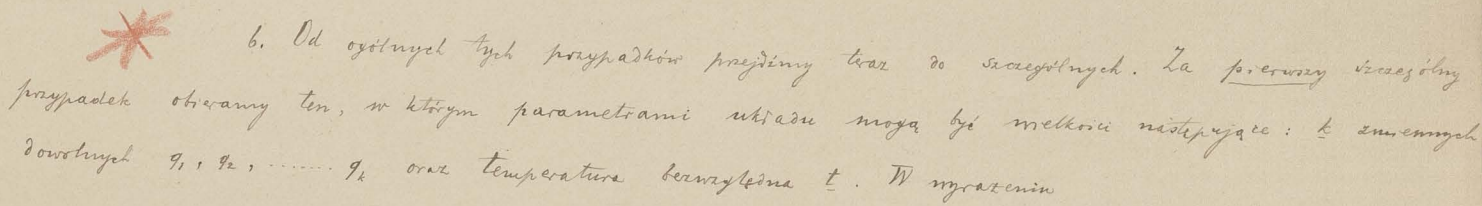 6. Od ogólnych tych przypadków przejdźmy teraz do szczególnych. Za pierwszy szczególny
przypadek obieramy ten, w którym parametrami układu mogą być wielkości następujące: k zmiennych
dowolnych q₁, q₂, ....... qₖ oraz temperatura bezwzględna t. W wyrażeniu